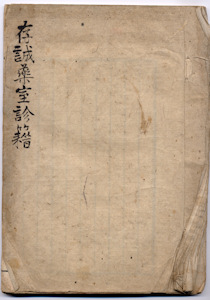 存誠藥室診籍